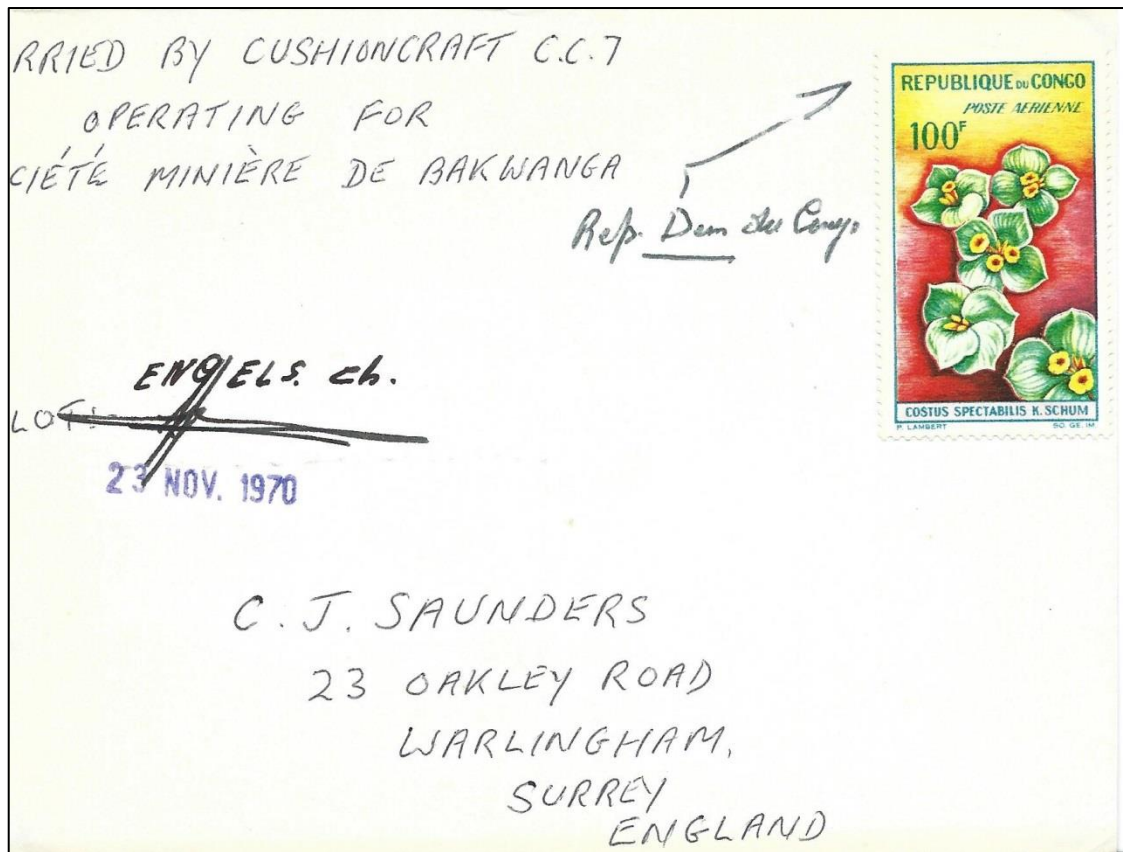 RRIED BY CUSHIONCRAFT C.C.7
OPERATING FOR
CIÉTÉ MINIÈRE DE BAKWANGA
REPUBLIQUE DU CONGO
POSTE AERIENNE
100F
Rep. Dem du Congo
COSTUS SPECTABILIS K. SCHUM
P. LAMBERT SO. GE. IM.
ENGELS. Ch.
LOT:
23 NOV. 1970
C. J. SAUNDERS
23 OAKLEY ROAD
WARLINGHAM,
SURREY
ENGLAND